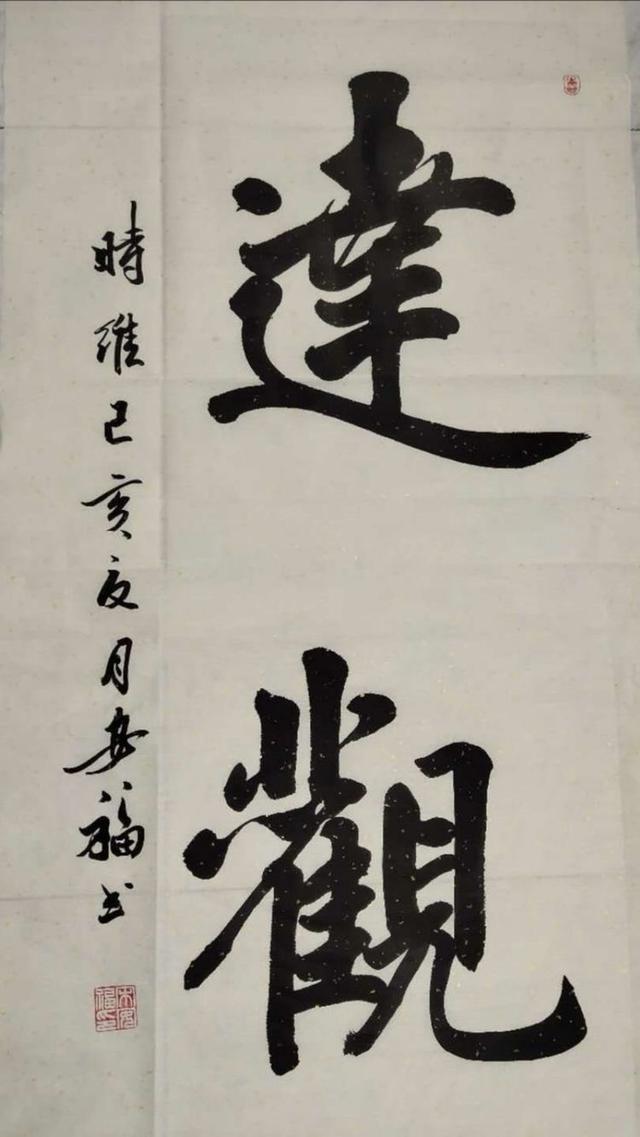 達觀
時維己亥夏月安福书